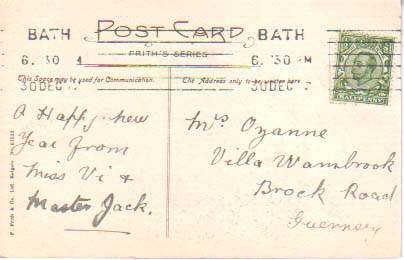 BATH
POST CARD
BATH
FRITH'S SERIES
6. 30
6. 30 PM
30 DEC
30 DEC
This Space may be used for Communication.
The Address only to be written here
HALFPENNY
A Happy new
Year from
Miss Vi &
Master Jack.
Mrs Ozanne
Villa Wambrook
Brock Road
Guernsey
F. Frith & Co., Ltd. Reigate.